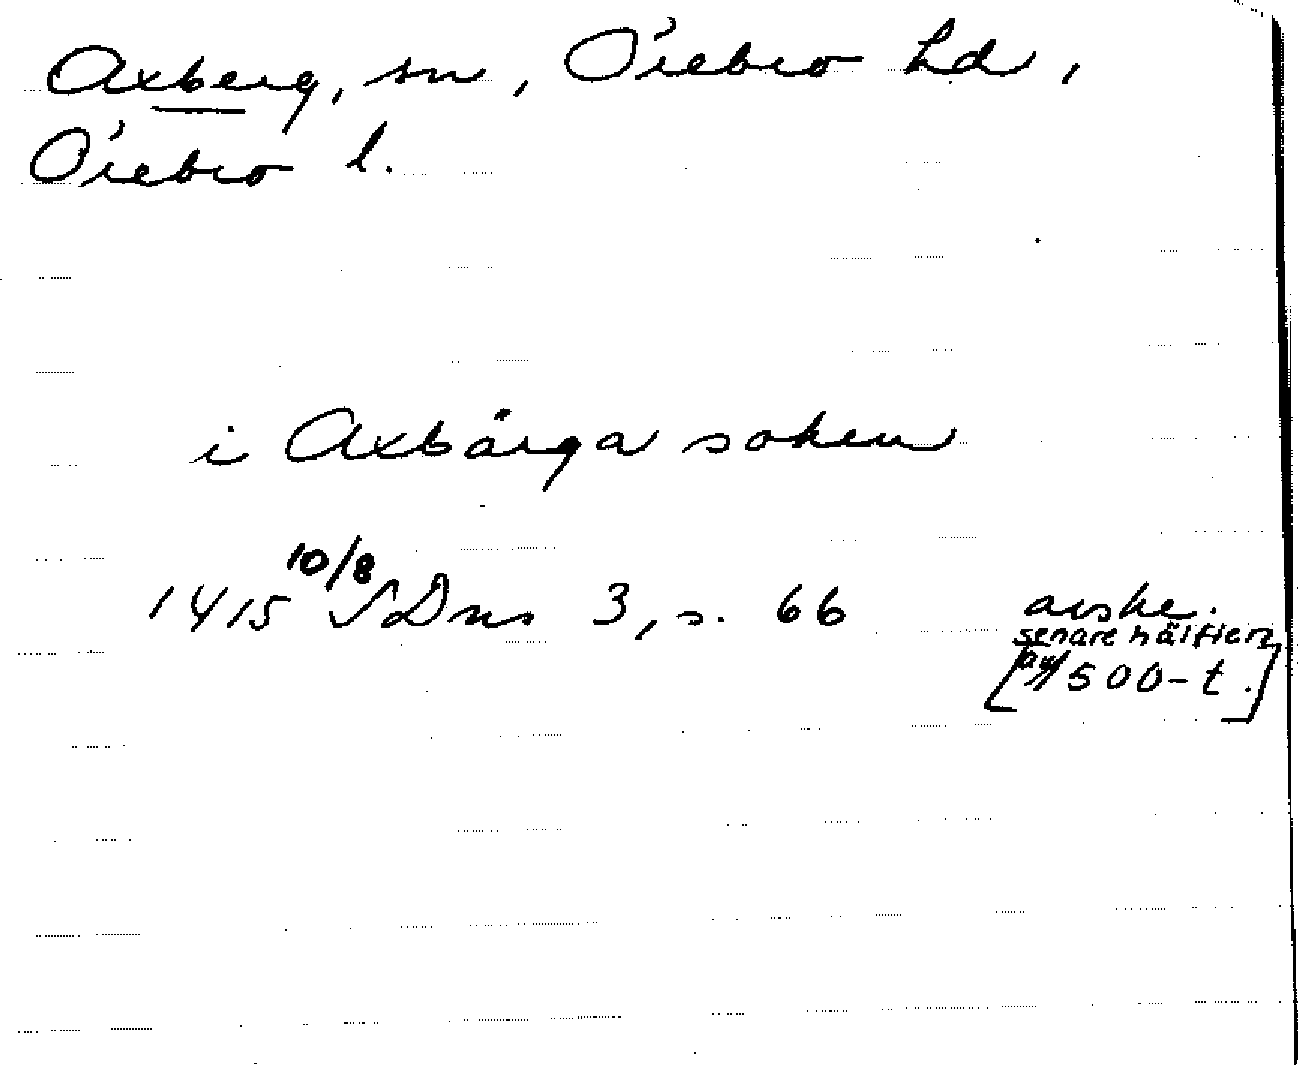 Axberg, sn, Örebro hd,
Örebro l.
i Axbärga soken
1415 10/8 SDns 3, s. 66 avskr.
senare hälften
[av 1500-t.]